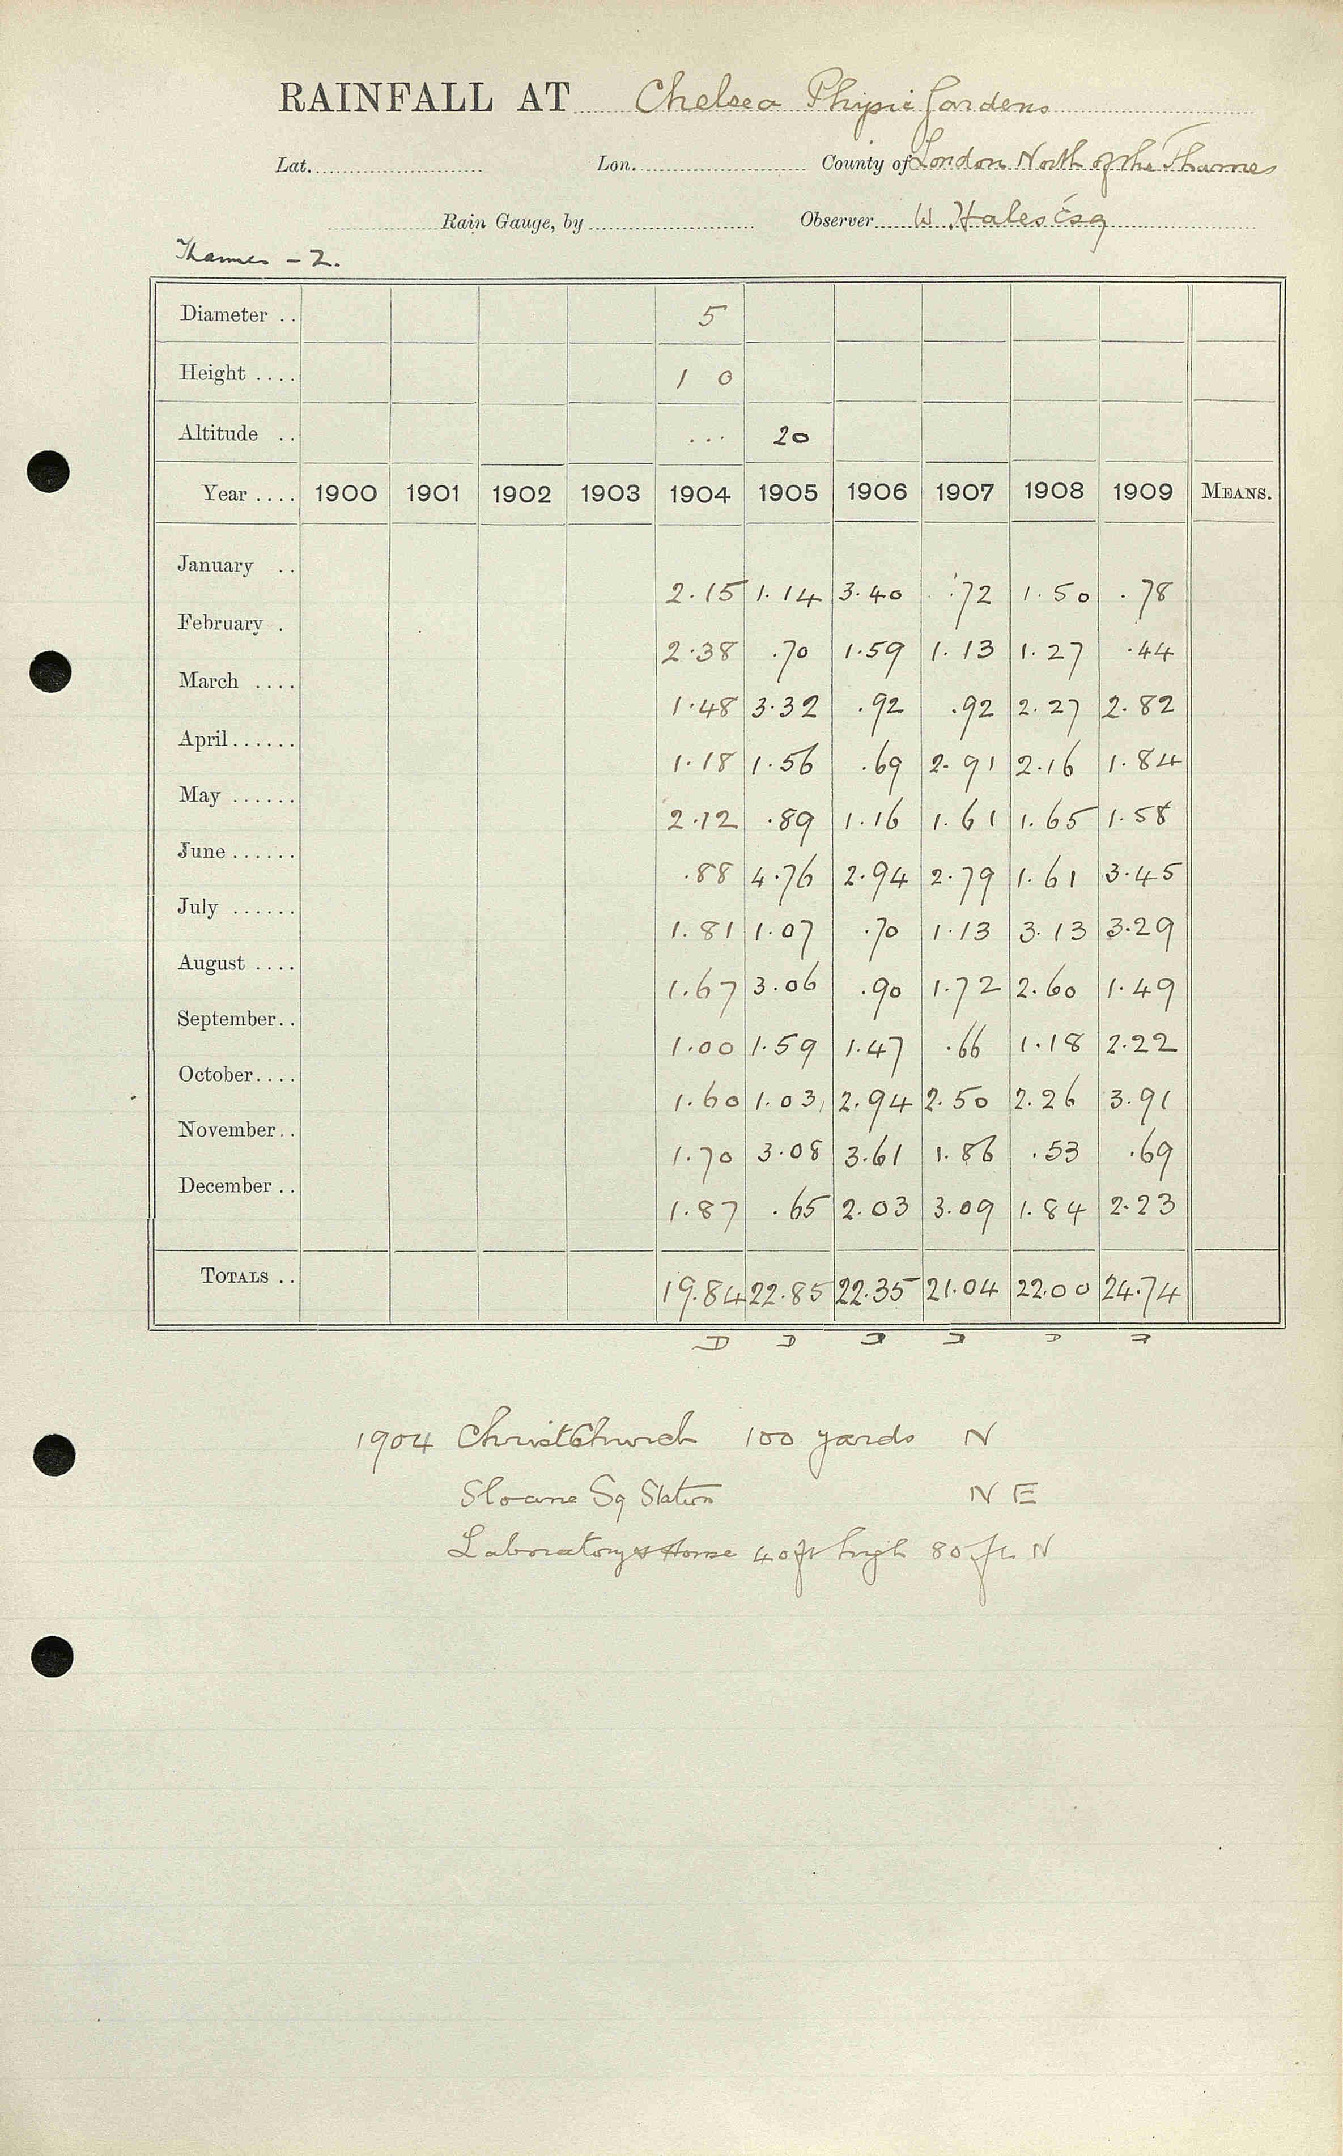 RAINFALL AT Chelsea Physic Gardens
Lat. Lon. County of London North of the Thames
Rain Gauge, by Observer W Hales Esq
Thames - 2.
Diameter .. 5
Height .... 1 0
Altitude .. ... 20
Year .... 1900 1901 1902 1903 1904 1905 1906 1907 1908 1909 MEANS.
January .. 2.15 1.14 3.40 .72 1.50 .78
February . 2.38 .70 1.59 1.13 1.27 .44
March .... 1.48 3.32 .92 .92 2.27 2.82
April...... 1.18 1.56 .69 2.91 2.16 1.84
May ...... 2.12 .89 1.16 1.61 1.65 1.58
June...... .88 4.76 2.94 2.79 1.61 3.45
July ...... 1.81 1.07 .70 1.13 3.13 3.29
August .... 1.67 3.06 .90 1.72 2.60 1.49
September.. 1.00 1.59 1.47 .66 1.18 2.22
October.... 1.60 1.03 2.94 2.50 2.26 3.91
November.. 1.70 3.08 3.61 1.86 .53 .69
December .. 1.87 .65 2.03 3.09 1.84 2.23
TOTALS .. 19.84 22.85 22.35 21.04 22.00 24.74
D D D D D D
1904 Christchurch 100 yards N
Sloane Sq Station N E
Laboratory & House 40 ft high 80 ft N